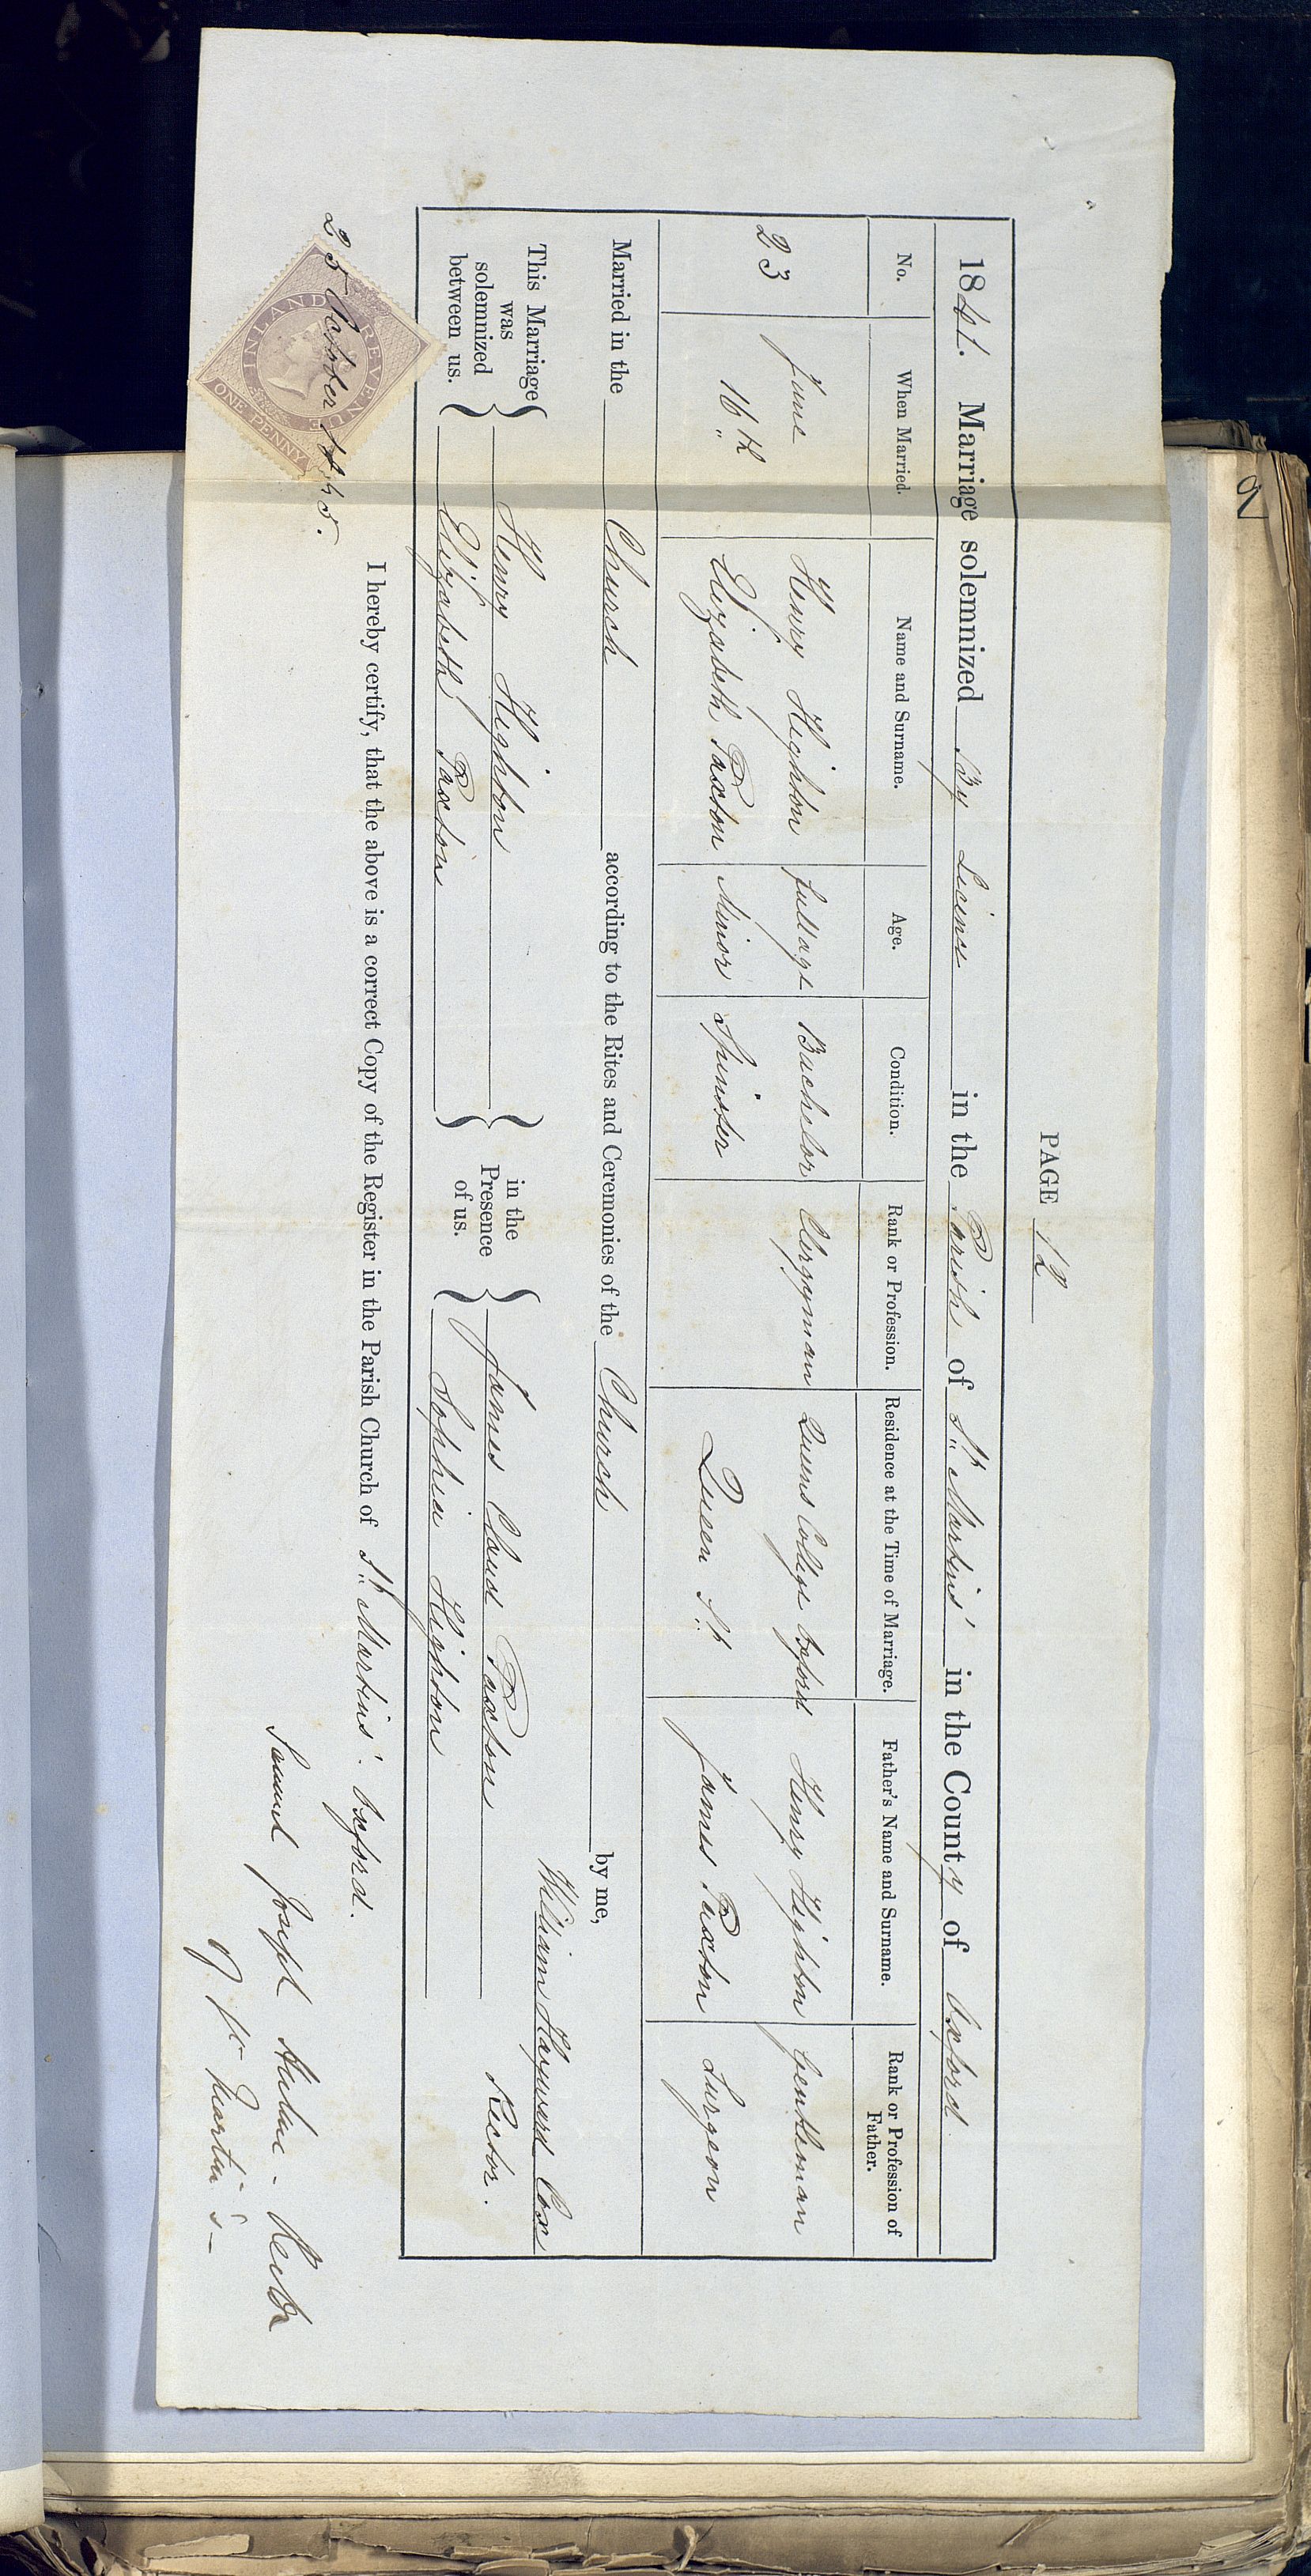 PAGE 12
1841. Marriage solemnized By Licence in the Parish of St. Martins' in the County of Oxford
No. When Married. Name and Surname. Age. Condition. Rank or Profession. Residence at the Time of Marriage. Father's Name and Surname. Rank or Profession of Father.
23 June 16th Henry Highton full age Bachelor Clergyman Queens College Oxford Henry Highton Gentleman
Elizabeth Paxton Minor Spinster Queen St. James Paxton Surgeon
Married in the Church according to the Rites and Ceremonies of the Church by me,
William Hayward Cox
Rector.
This Marriage was solemnized between us. Henry Highton
Elizabeth Paxton
in the Presence of us. James Claud Paxton
Sophia Highton
I hereby certify, that the above is a correct Copy of the Register in the Parish Church of St. Martins'. Oxford.
INLAND REVENUE
ONE PENNY
25 October
Samuel Joseph Rector
of St Martin's
9